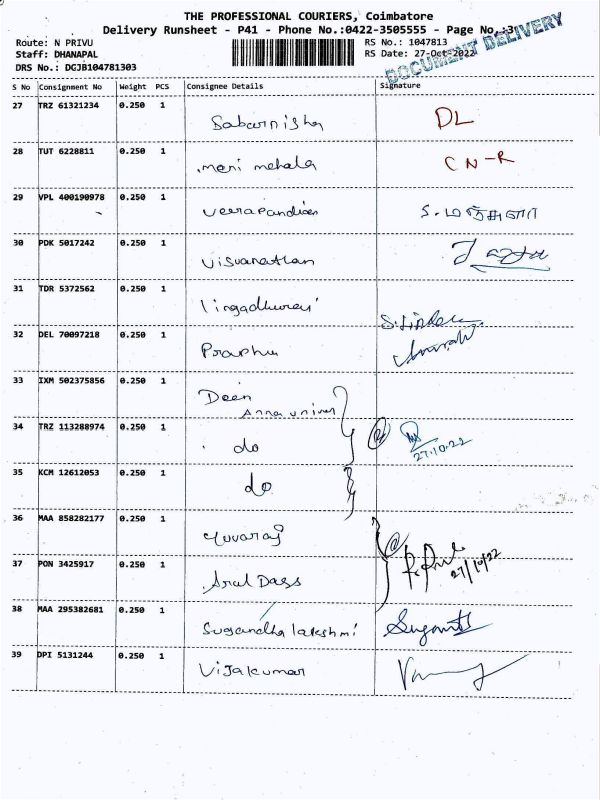 THE PROFESSIONAL COURIERS, Coimbatore
Delivery Runsheet - P41 - Phone No.:0422-3505555 - Page No.:3
Route: N PRIVU
RS No.: 1047813
Staff: DHANAPAL
RS Date: 27-Oct-2022
DRS No.: DGJB104781303
DOCUMENT DELIVERY
S No Consignment No Weight PCS Consignee Details Signature
27 TRZ 61321234 0.250 1
Sabarnisha DL
28 TUT 6228811 0.250 1
mari mehala CN-R
29 VPL 400190978 0.250 1
veerapandian
30 PDK 5017242 0.250 1
Visvanathan
31 TDR 5372562 0.250 1
lingadhurai
32 DEL 70097218 0.250 1
Praphu
33 IXM 502375856 0.250 1
Deen
Anna univer
34 TRZ 113288974 0.250 1
do
27.10.22
35 KCM 12612053 0.250 1
do
36 MAA 858282177 0.250 1
Yuvaraj
37 PON 3425917 0.250 1
27/10/22
Arul Dass
38 MAA 295382681 0.250 1
Sugandha lakshmi
39 DPI 5131244 0.250 1
Vijakumar